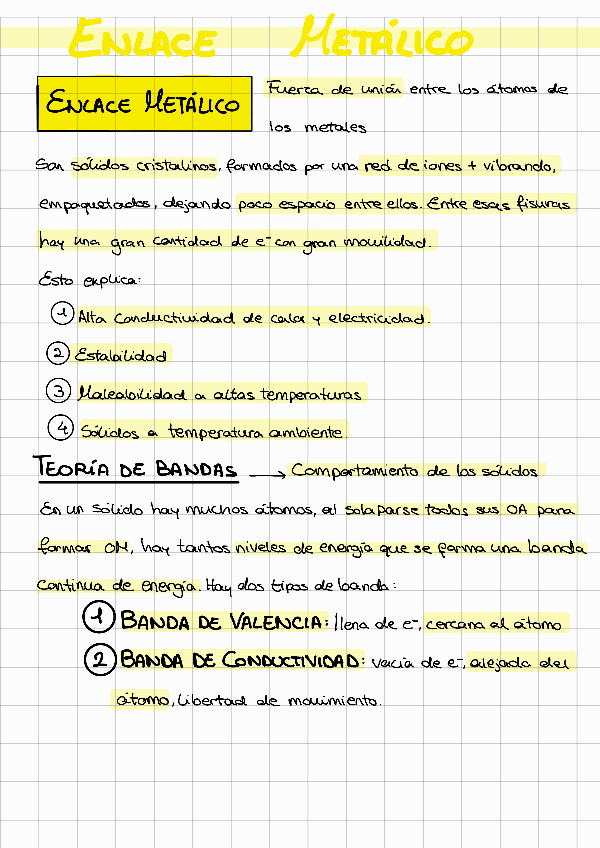 ENLACE METÁLICO
ENLACE METÁLICO
Fuerza de unión entre los átomos de
los metales
Son sólidos cristalinos, formados por una red de iones + vibrando,
empaquetados, dejando poco espacio entre ellos. Entre esas fisuras
hay una gran cantidad de e⁻ con gran movilidad.
Esto explica:
1 Alta conductividad de calor y electricidad.
2 Estabilidad
3 Maleabilidad a altas temperaturas
4 Sólidos a temperatura ambiente.
TEORÍA DE BANDAS → Comportamiento de los sólidos
En un sólido hay muchos átomos, al solaparse todos sus OA para
formar OM, hay tantos niveles de energía que se forma una banda
continua de energía. Hay dos tipos de banda:
1 BANDA DE VALENCIA: llena de e⁻, cercana al átomo
2 BANDA DE CONDUCTIVIDAD: vacía de e⁻, alejada del
átomo, libertad de movimiento.